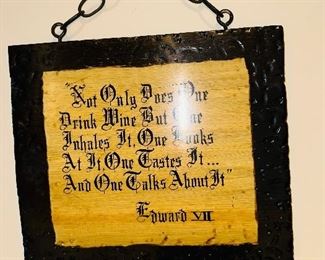 "Not Only Does One
Drink Wine But One
Inhales It, One Looks
At It, One Tastes It...
And One Talks About It"
Edward VII